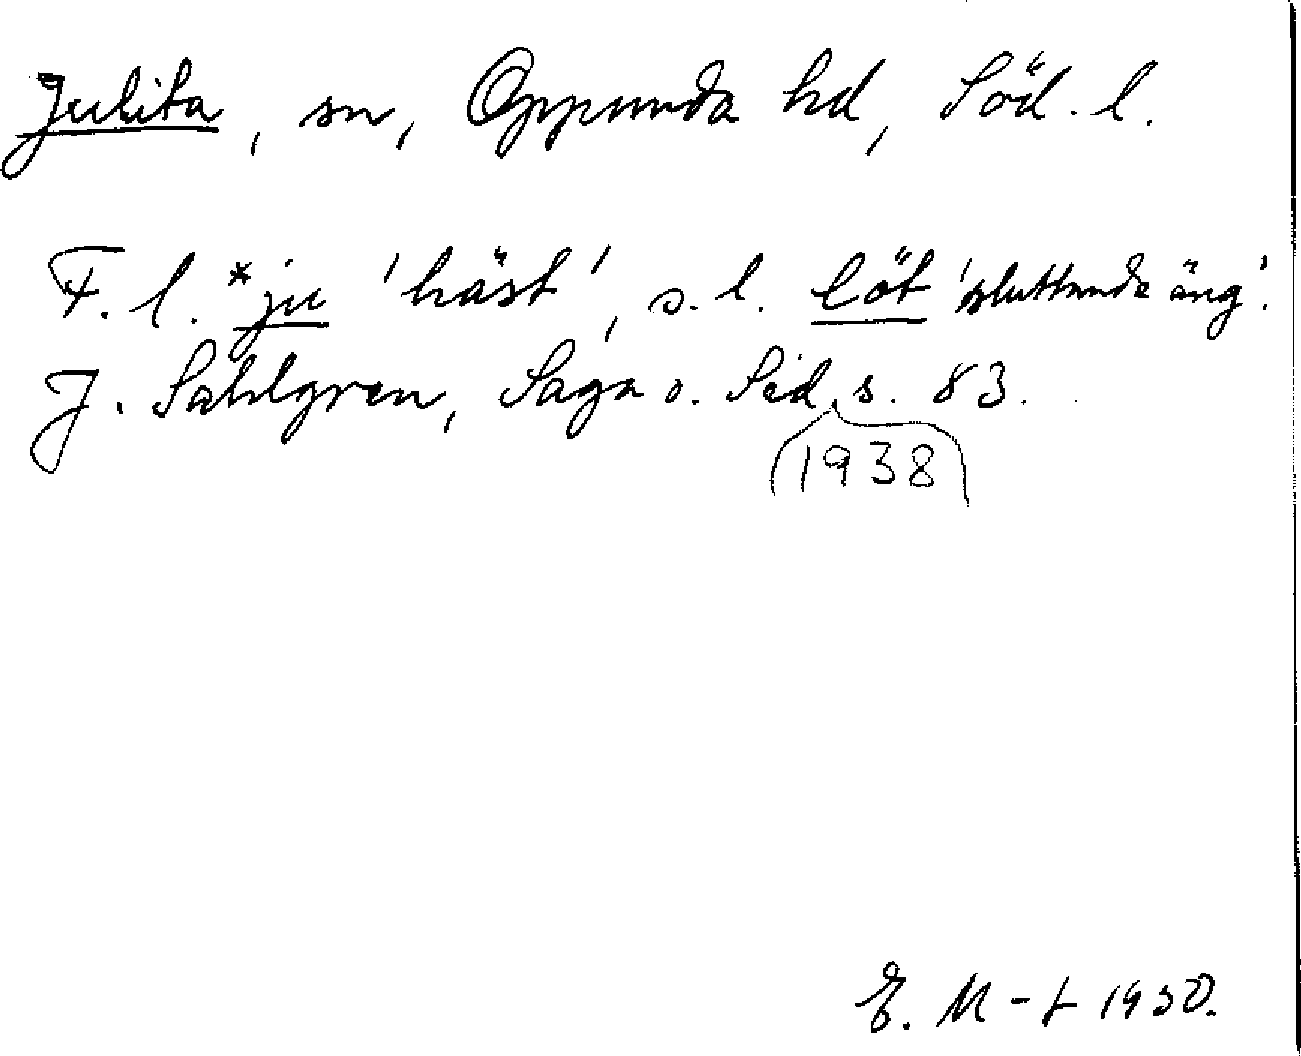 Julita, sn, Oppunda hd, Söd. l.
F. l. *ju 'häst', s. l. löt 'sluttande äng'.
J. Sahlgren, Saga o. Sed, s. 83.
(1938)
E. M-t 1950.